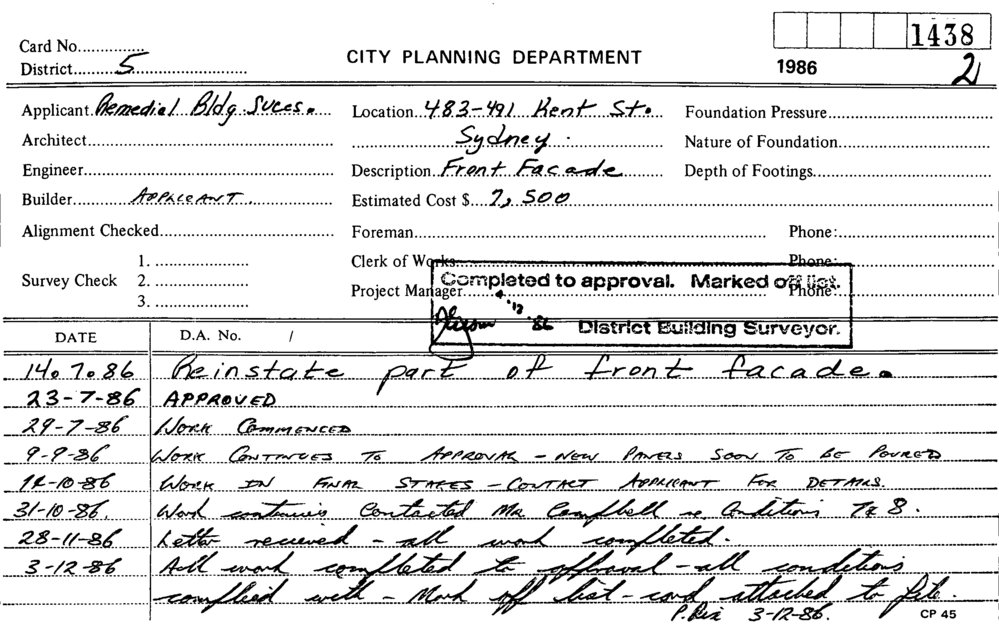 Card No...............
1438
District.........5.........................
CITY PLANNING DEPARTMENT
1986
2
Applicant Remedial Bldg. Svces.
Location 483-491 Kent St.
Foundation Pressure
Architect
Sydney.
Nature of Foundation
Engineer
Description Front Facade
Depth of Footings
Builder APPLICANT
Estimated Cost $ 7,500
Alignment Checked
Foreman
Phone:
1.
Clerk of Works
Phone:
Survey Check 2.
Project Manager
Phone:
3.
Completed to approval. Marked off list.
4.12.86 District Building Surveyor.
DATE D.A. No. /
14.7.86 Reinstate part of front facade.
23-7-86 APPROVED
29-7-86 WORK COMMENCED
9-9-86 WORK CONTINUES TO APPROVAL - NEW PANELS SOON TO BE POURED
-10-86 WORK IN FINAL STAGES - CONTACT APPLICANT FOR DETAILS.
31-10-86. Work continuing Contacted Mr Campbell re Conditions 7 & 8.
28-11-86 Letter received - all work completed.
3-12-86 All work completed to approval - all conditions
complied with - Mark off list - card attached to file.
3-12-86.
CP 45